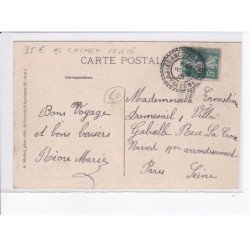 35€ CACHET PERLÉ
CARTE POSTALE
Correspondance
Bons Voyage
et bons baisers
Riou Marie
Mademoiselle Ernestine
Dumesnil, Villa
Gabrielle Rue La Croix
Nivert 15er arrondissement
Paris
Seine